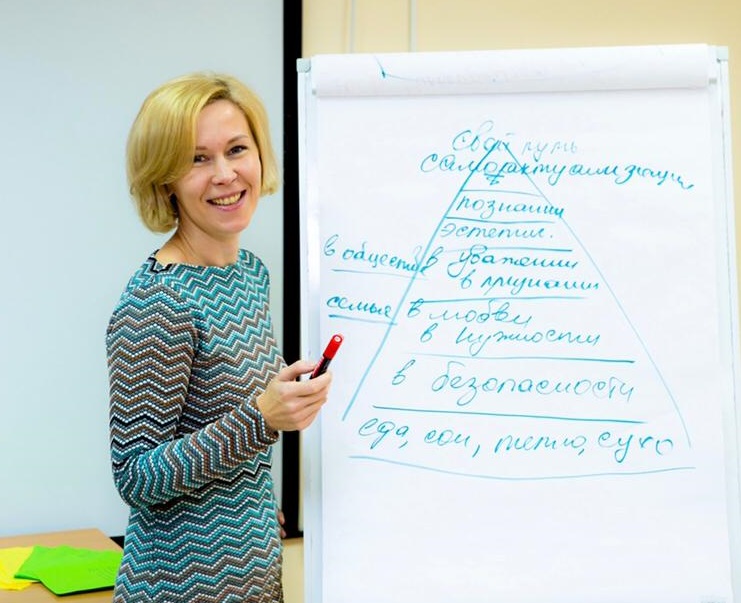 свой путь
самоактуализации
познании
эстетич.
в обществе
в уважении
в признании
семье
в любви
в нужности
в безопасности
еда, сон, тепло, сухо